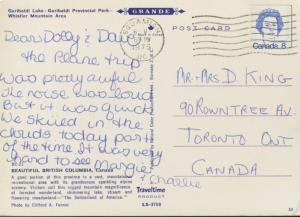 Garibaldi Lake - Garibaldi Provincial Park -
Whistler Mountain Area
GRANDE
POST CARD
SQUAMISH
1973
Canada 8
Dear Dolly & Dave
the plane trip
was pretty awful
the noise was loud
But it was quick
We skiied in the
clouds today part
of the time It was very
hard to see Margie
& Charlie
MR + MRS D KING
90 ROWNTREE AV
TORONTO ONT
CANADA
BEAUTIFUL BRITISH COLUMBIA, Canada
A good portion of this province is a vast, mountainous
recreational area with its grandeurous sparkling alpine
scenery. Visitors call this rugged mountain magnificence
of forested wonderland, shimmering lake, stream and
flowered meadow - "The Switzerland of America."
Photo by Clifford A. Fenner
Traveltime
PRODUCT
LS-3758